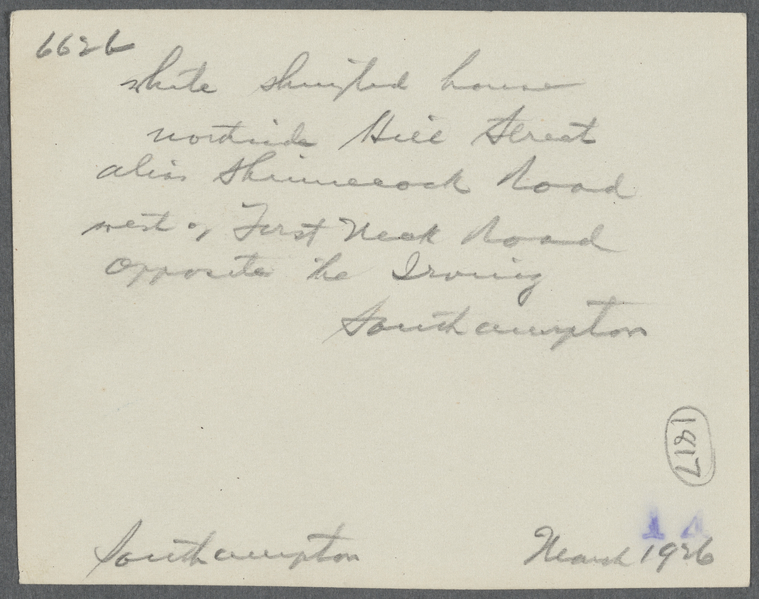 6626
white shingled house
northside Hill Street
alias Shinnecock Road
west of First Neck Road
opposite the Irving
Southampton
1817
14
Southampton March 1926